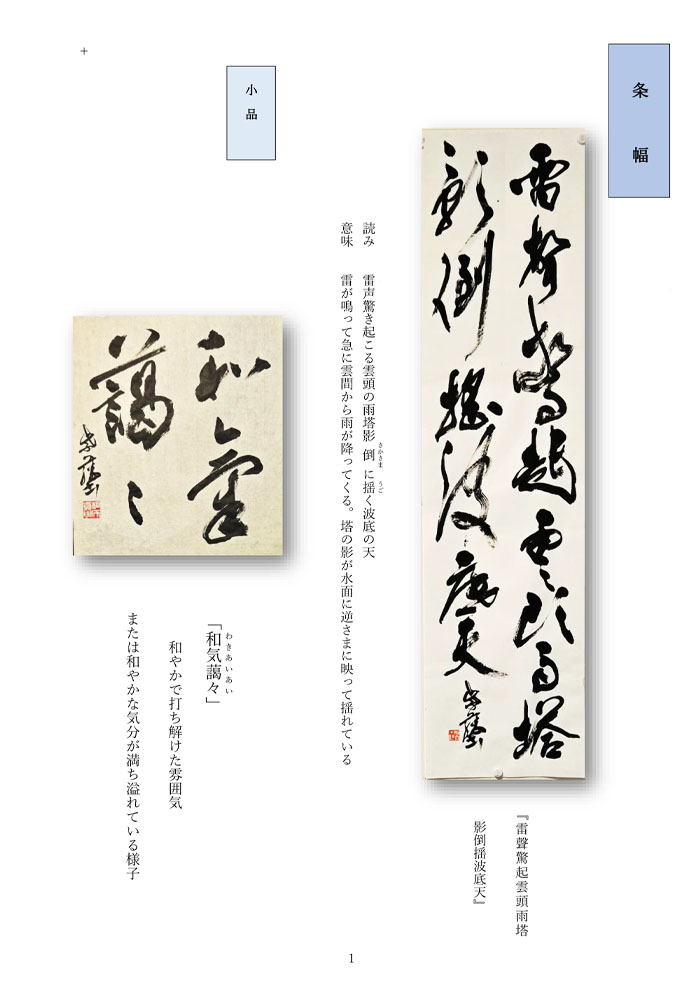 条幅
雷聲驚起雲頭雨塔
影倒揺波底天
『雷聲驚起雲頭雨塔
影倒揺波底天』
読み　雷声驚き起こる雲頭の雨塔影 倒 に揺く波底の天
さかさま
うご
意味　雷が鳴って急に雲間から雨が降ってくる。塔の影が水面に逆さまに映って揺れている
小品
和氣
藹々
「和気藹々」
わきあいあい
和やかで打ち解けた雰囲気
または和やかな気分が満ち溢れている様子
1